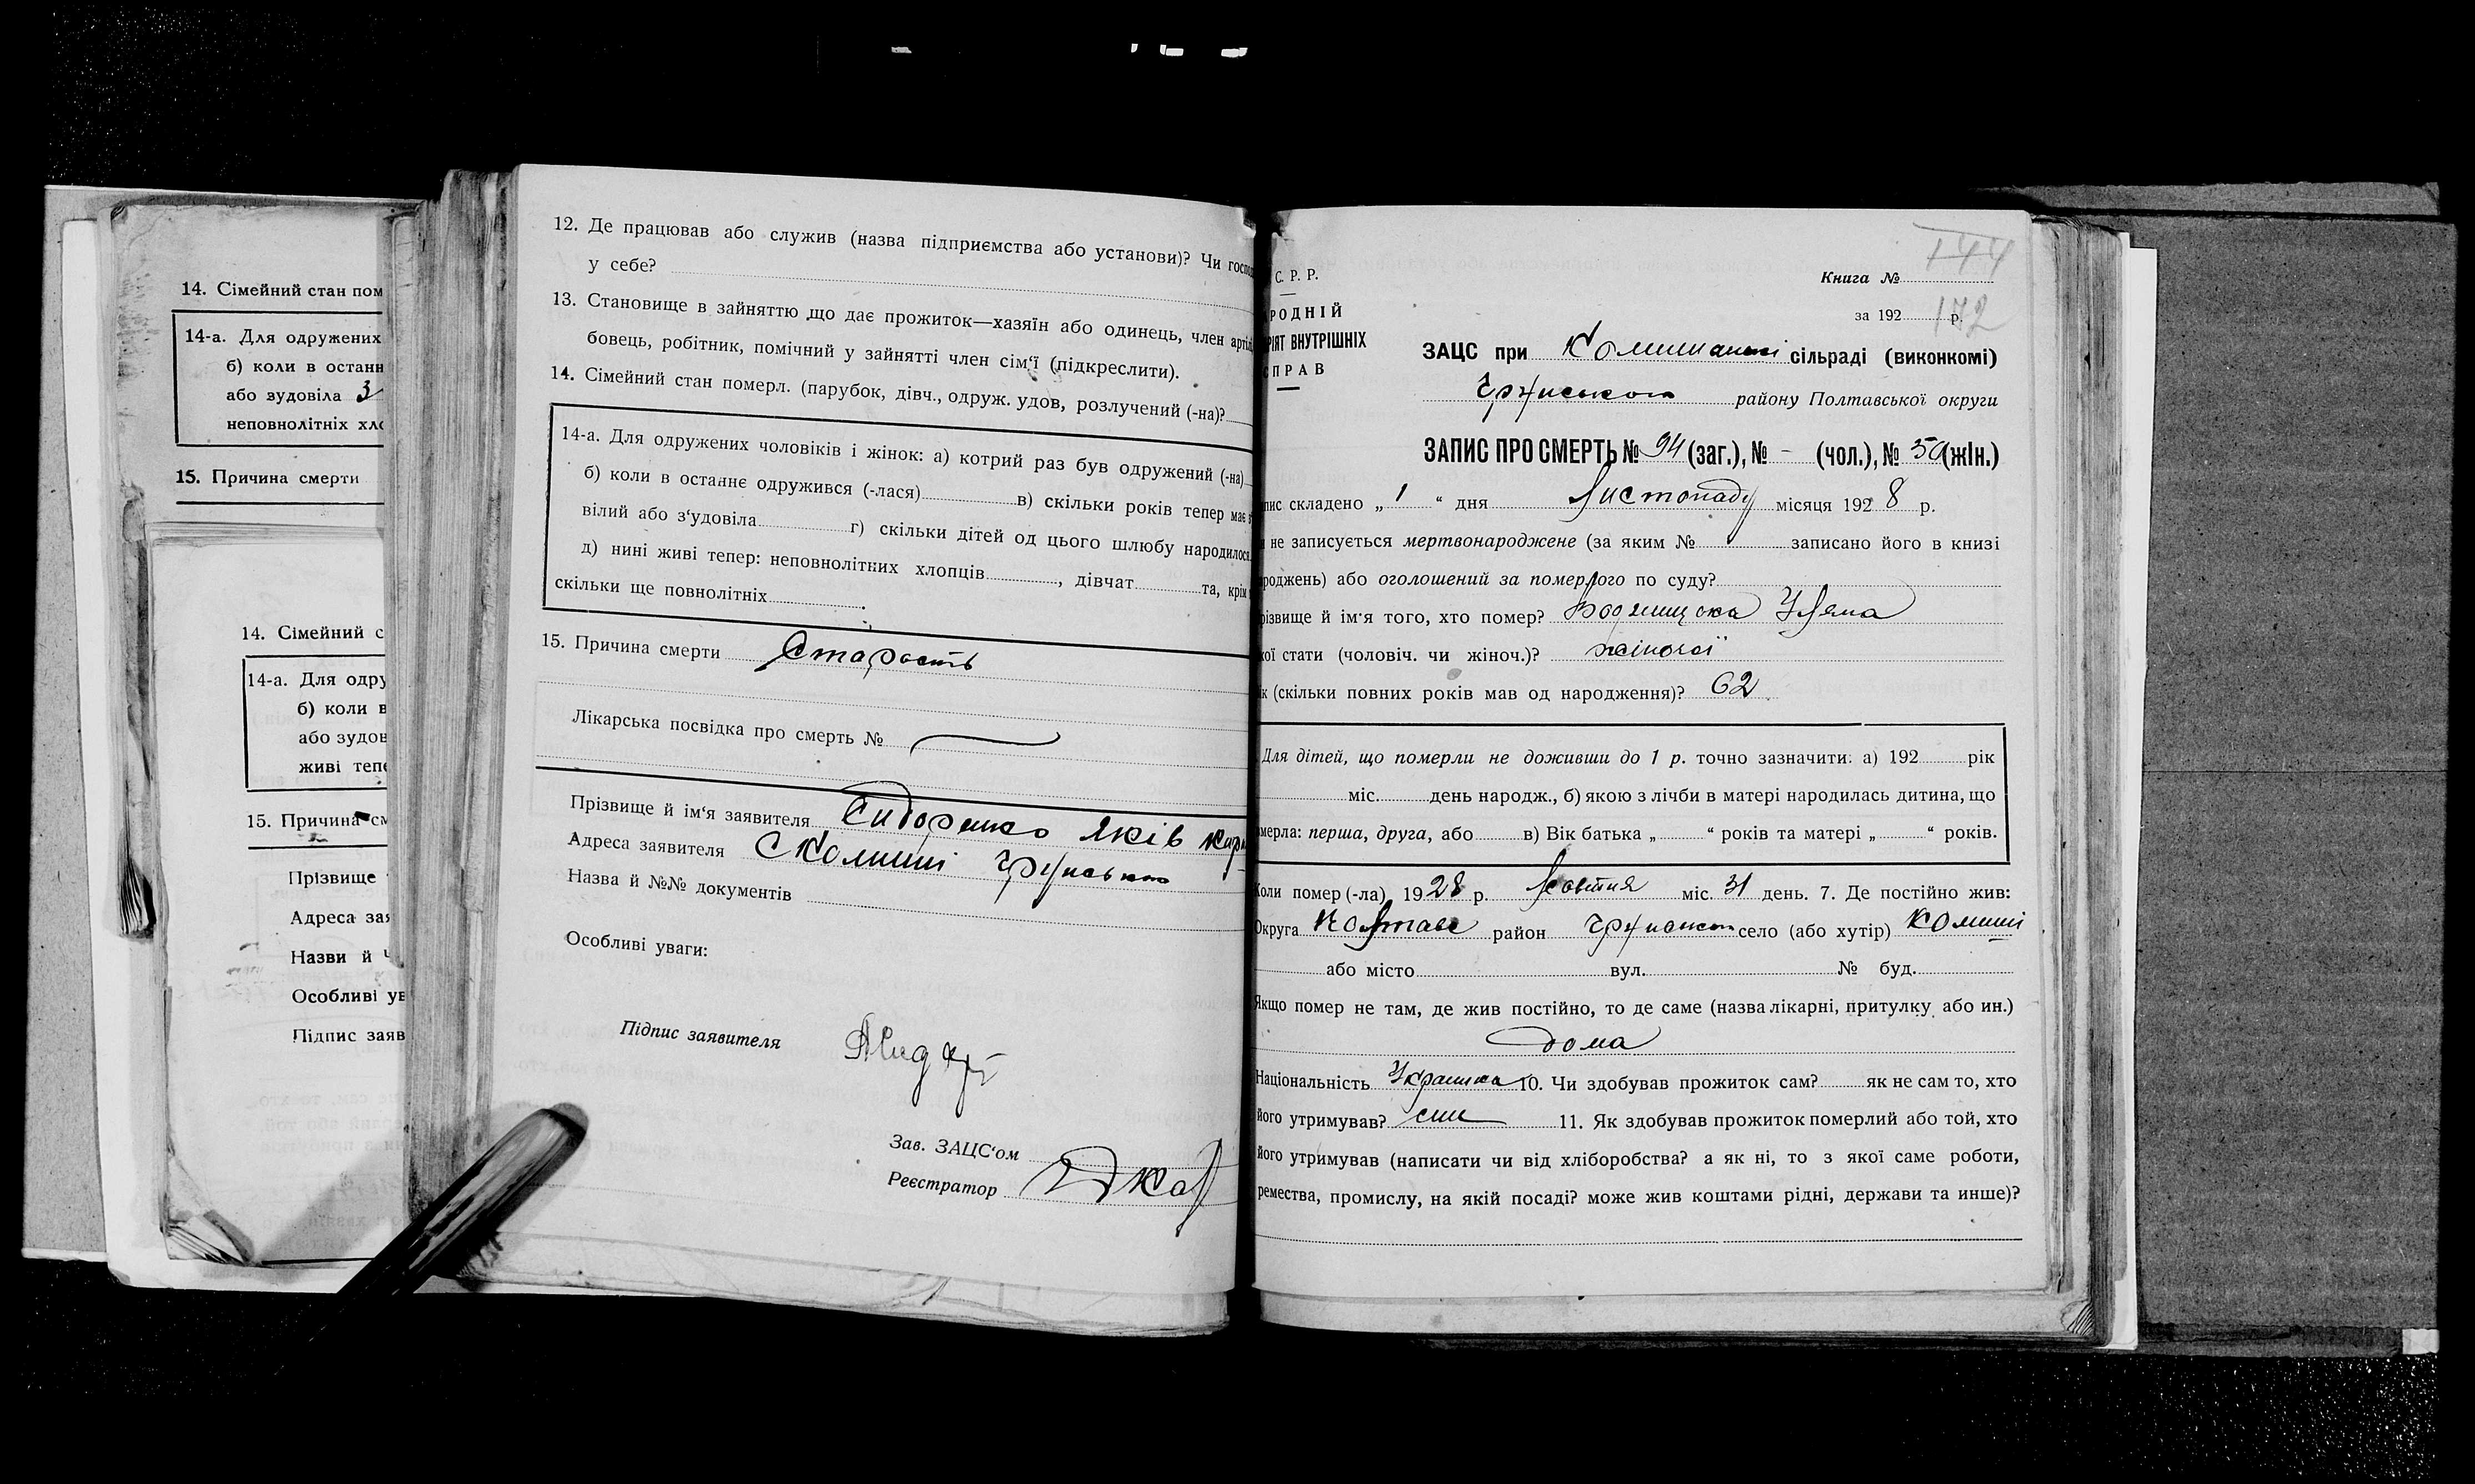 14. Сімейний стан пом
14-а. Для одружених
б) коли в останн
або зудовіла З
неповнолітніх хло
15. Причина смерти
14. Сімейний с
14-а. Для одру
б) коли в
або зудов
живі тепе
15. Причина см
Прізвище
Адреса зая
Назви й
Особливі ув
Підпис заяв
12. Де працював або служив (назва підприємства або установи)? Чи госпо
у себе?
13. Становище в зайняттю що дає прожиток—хазяїн або одинець, член артілі
бовець, робітник, помічний у зайнятті член сім'ї (підкреслити).
14. Сімейний стан померл. (парубок, дівч., одруж. удов, розлучений (-на)?
14-а. Для одружених чоловіків і жінок: а) котрий раз був одружений (-на)
б) коли в останнє одружився (-лася) в) скільки років тепер має
вілий або з'удовіла г) скільки дітей од цього шлюбу народилося
д) нині живі тепер: неповнолітних хлопців, дівчат та, крім
скільки ще повнолітніх.
15. Причина смерти Старость
Лікарська посвідка про смерть №
Прізвище й ім'я заявителя Сидоренко Яків
Адреса заявителя С Комиші Груньського
Назва й №№ документів
Особливі уваги:
Підпис заявителя
Зав. ЗАЦС'ом
Реєстратор
С. Р. Р.
РОДНІЙ
РІЯТ ВНУТРІШНІХ
СПРАВ
144
Книга №
172
за 192 р.
ЗАЦС при Комишанські сільраді (виконкомі)
Груньського району Полтавської округи
ЗАПИС ПРО СМЕРТЬ № 94 (заг.), № - (чол.), № 50 (жін.)
пис складено „1“ дня Листопаду місяця 1928 р.
не записується мертвонароджене (за яким № записано його в книзі
роджень) або оголошений за померлого по суду?
різвище й ім'я того, хто помер? Уляна
кої стати (чоловіч. чи жіноч.)? жіночої
ік (скільки повних років мав од народження)? 62
Для дітей, що померли не доживши до 1 р. точно зазначити: а) 192 рік
міс. день народж., б) якою з лічби в матері народилась дитина, що
мерла: перша, друга, або в) Вік батька „ “ років та матері „ “ років.
Коли помер (-ла) 1928 р. Жовтня міс. 31 день. 7. Де постійно жив:
Округа Полтавс район Груньськ село (або хутір) Комиші
або місто вул. № буд.
Якщо помер не там, де жив постійно, то де саме (назва лікарні, притулку або ин.)
дома
Національність Українка 10. Чи здобував прожиток сам? як не сам то, хто
його утримував? син 11. Як здобував прожиток померлий або той, хто
його утримував (написати чи від хліборобства? а як ні, то з якої саме роботи,
ремества, промислу, на якій посаді? може жив коштами рідні, держави та инше)?